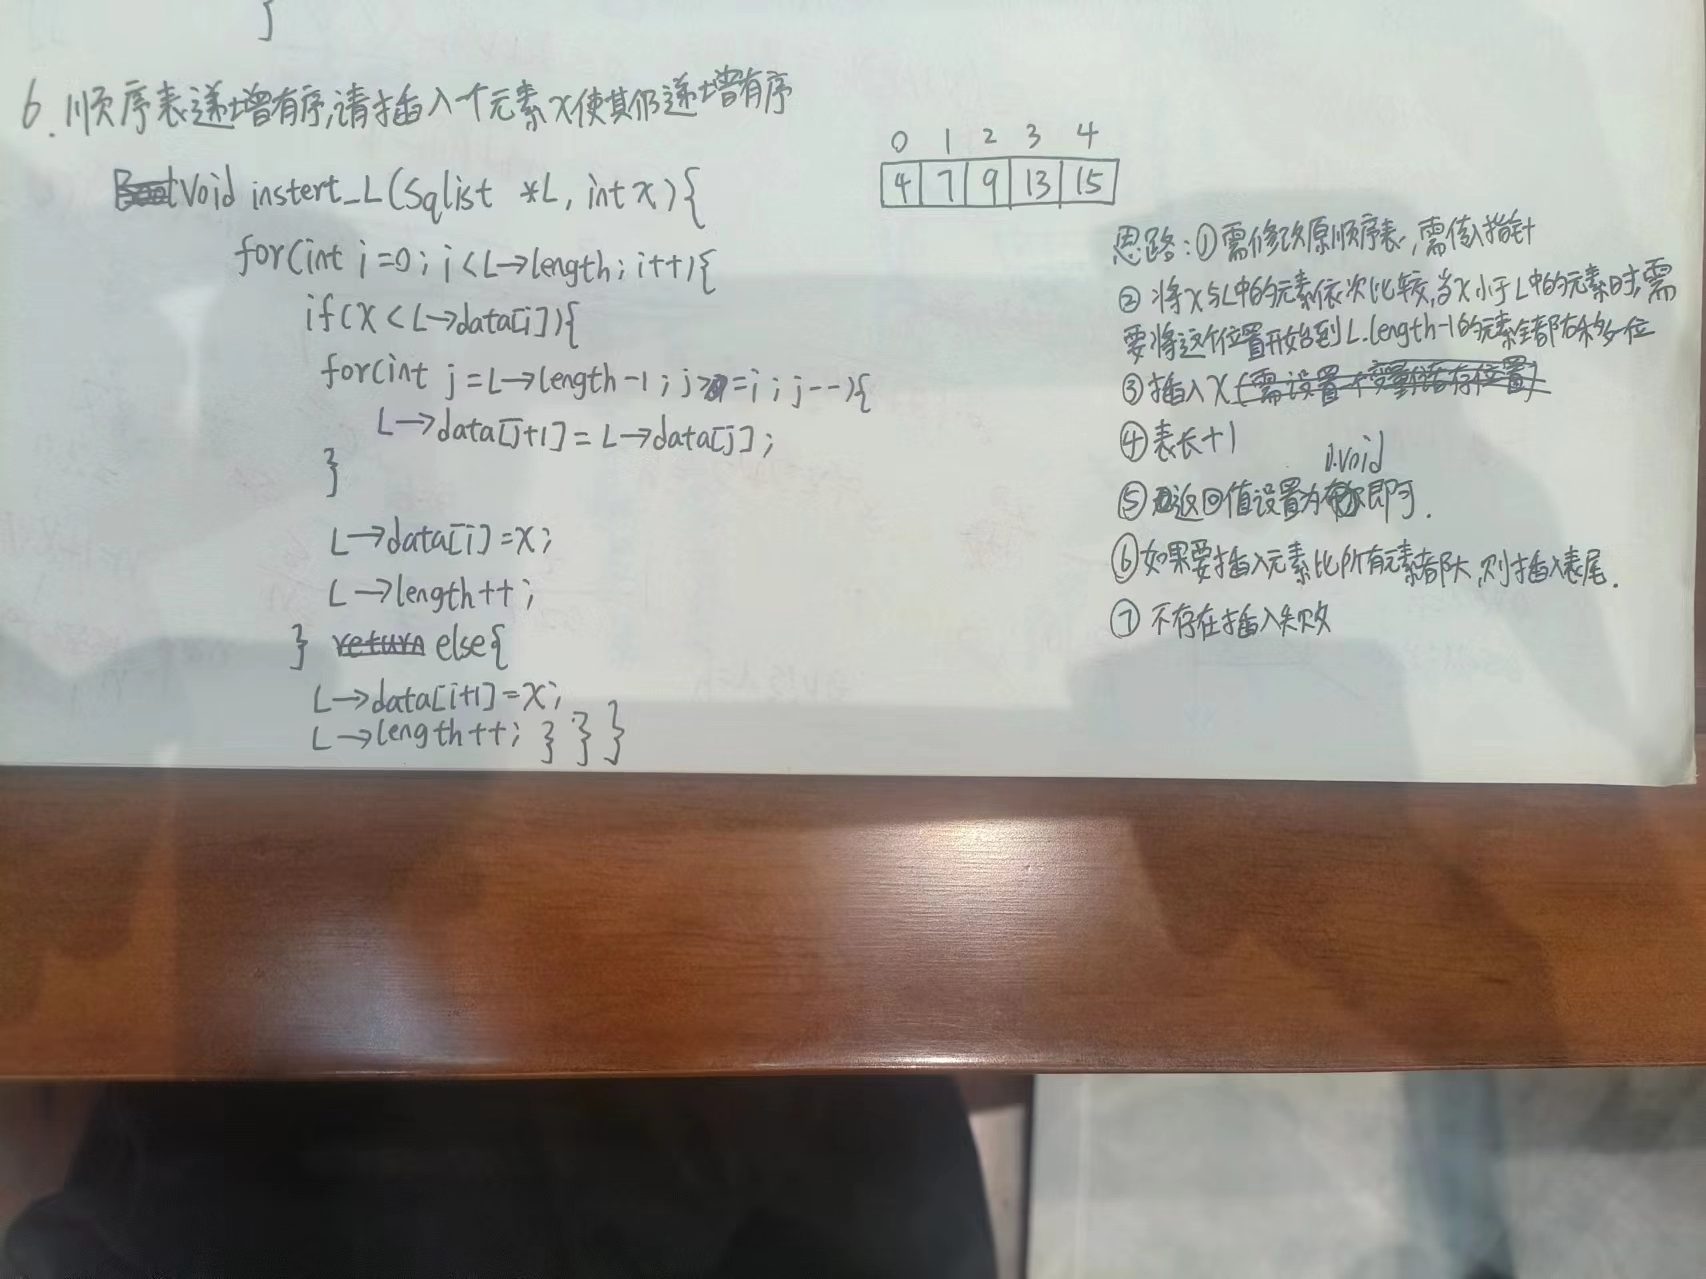 }
6. 顺序表递增有序,请插入一个元素x使其仍递增有序
void instert_L(Sqlist *L, int x){
for(int i=0; i<L→length; i++){
if(x<L→data[i]){
for(int j=L→length-1; j>=i; j--){
L→data[j+1]=L→data[j];
}
L→data[i]=x;
L→length++;
} return else{
L→data[i+1]=x;
L→length++; } } }
0 1 2 3 4
4 7 9 13 15
思路:①需修改原顺序表,需传入指针
②将x与L中的元素依次比较,当x小于L中的元素时,需
要将这个位置开始到L.length-1的元素全部右移一位
③插入x(需设置一个变量储存位置)
④表长+1
void
⑤返回值设置为即可.
⑥如果要插入元素比所有元素都大,则插入表尾.
⑦不存在插入失败